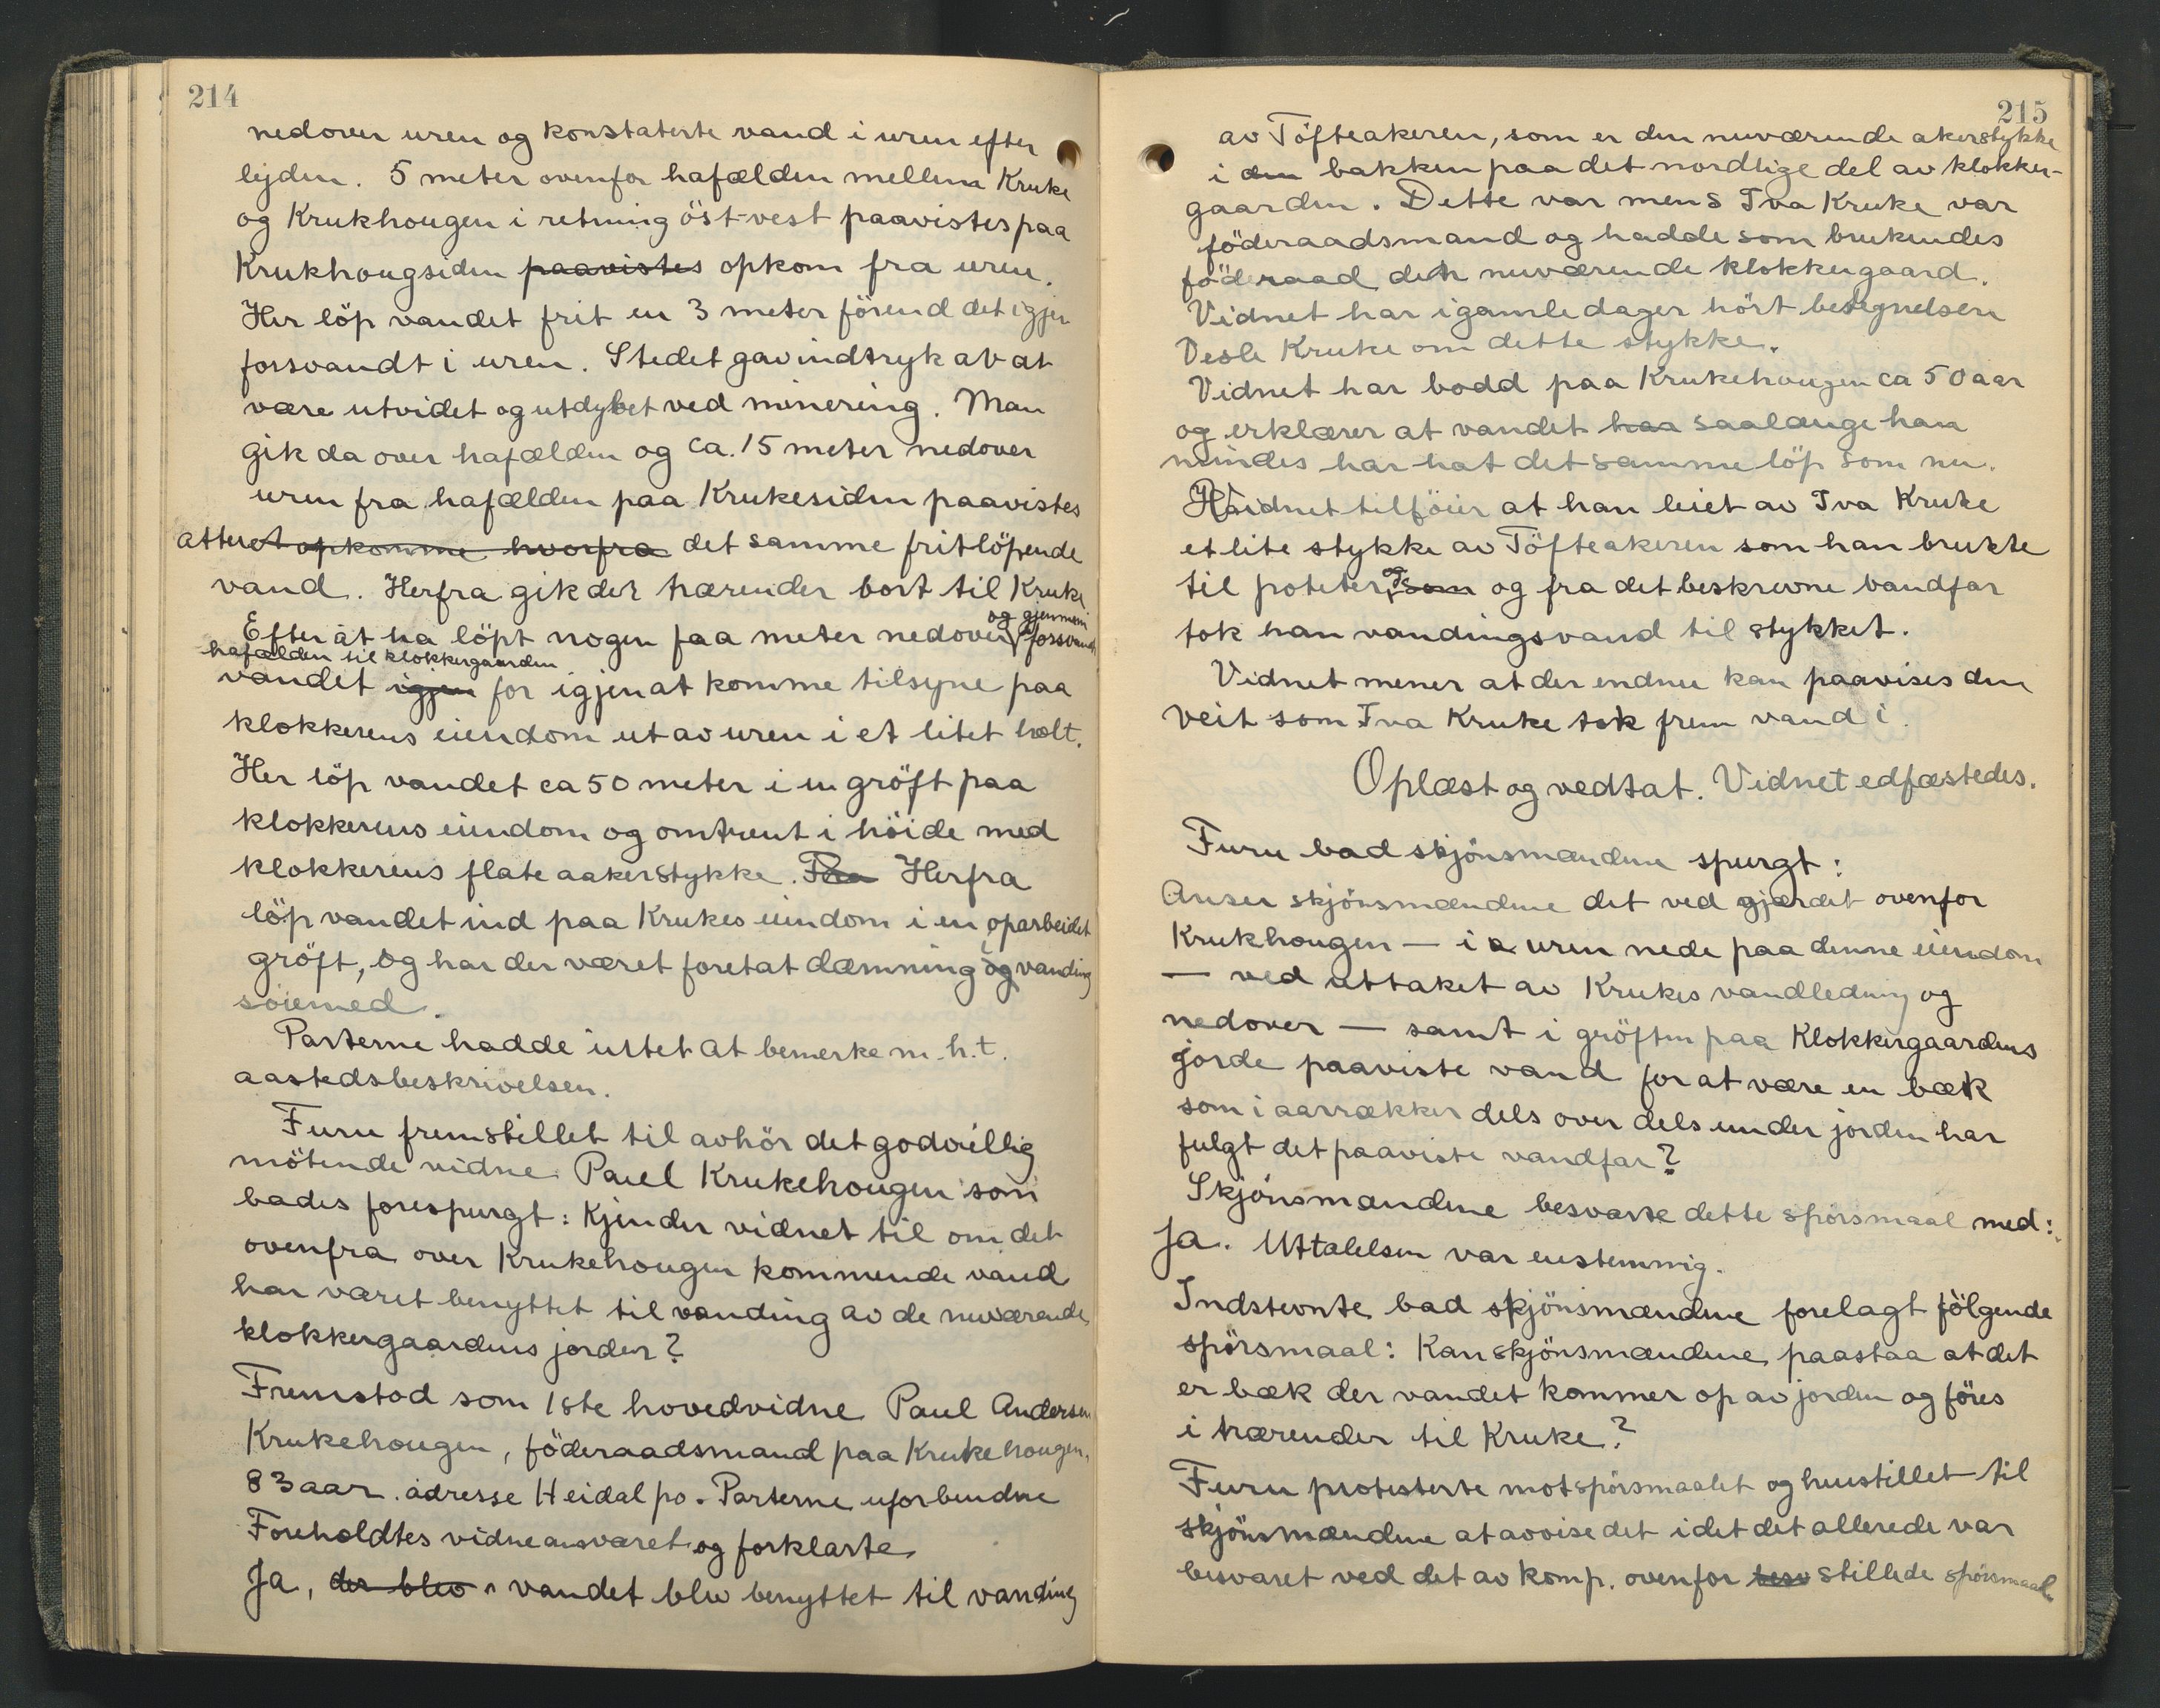 214
nedover uren og konstaterte vand i uren efter
lyden. 5 meter ovenfor hafælden mellem Kruke
og Krukhougen i retning öst-vest paavistes paa
Krukhougsiden paavistes opkom fra uren.
Her löp vandet frit en 3 meter förend det igjen
forsvandt i uren. Stedet gav indtryk av at
være utvidet og utdybet ved minering. Man
gik da over hafælden og ca. 15 meter nedover
uren fra hafælden paa Krukesiden paavistes
atter et opkomme hvorfra det samme fritlöpende
vand. Herfra gik der trærender bort til Kruke
og gjennem
Efter at ha löpt nogen faa meter nedover forsvandt
hafælden til klokkergaarden
vandet igjen for igjen at komme tilsyne paa
klokkerens eiendom ut av uren i et litet holt.
Her löp vandet ca 50 meter i en gröft paa
klokkerens eiendom og omtrent i höide med
klokkerens flate aakerstykke. Paa Herfra
löp vandet ind paa Krukes eiendom i en oparbeidet
gröft, og har der været foretat dæmning i og vanding
söiemed.
Parterne hadde intet at bemerke m.h.t.
aastedsbeskrivelsen.
Furu fremstillet til avhör det godvillig
mötende vidne Paul Krukehougen som
bades forespurgt: Kjender vidnet til om det
ovenfra over Krukehougen kommende vand
har været benyttet til vanding av de nuværende
klokkergaardens jorder?
Fremstod som 1ste hovedvidne Paul Andersen
Krukehougen, föderaadsmand paa Krukehougen,
83 aar. adresse Heidal po. Parterne uforbunden
Foreholdtes vidneansvaret og forklarte
Ja, der blev vandet blev benyttet til vanding
215
av Töfteakeren, som er den nuværende akerstykke
i den bakken paa det nordlige del av klokker-
gaarden. Dette var mens Iva Kruke var
föderaadsmand og hadde som brukendes
föderaad den nuværende klokkergaard.
Vidnet har i gamle dager hört betegnelsen
Vesle Kruke om dette stykke.
Vidnet har bodd paa Krukehougen ca 50 aar
og erklærer at vandet haa saalænge han
mindes har hat det samme löp som nu.
Vidnet tilföier at han leiet av Iva Kruke
et lite stykke av Töfteakeren som han brukte
til poteter, som og fra det beskrevne vandfar
tok han vandingsvand til stykket.
Vidnet mener at der endnu kan paavises den
veit som Iva Kruke tok frem vand i.
Oplæst og vedtat. Vidnet edfæstedes.
Furu bad skjönsmændene spurgt:
Anser skjönsmændene det ved gjærdet ovenfor
Krukhougen — i uren nede paa denne eiendom
— ved uttaket av Krukes vandledning og
nedover — samt i gröften paa Klokkergaardens
jorde paaviste vand for at være en bæk
som i aarrækker dels over dels under jorden har
fulgt det paaviste vandfar?
Skjönsmændene besvarte dette spörsmaal med:
Ja. Uttalelsen var enstemmig.
Indstevnte bad skjönsmændene forelagt fölgende
spörsmaal: Kan skjönsmændene paastaa at det
er bæk der vandet kommer op av jorden og föres
i trærender til Kruke?
Furu protesterte mot spörsmaalet og henstillet til
skjönsmændene at avvise det idet det allerede var
besvaret ved det av komp. ovenfor besv stillede spörsmaal.